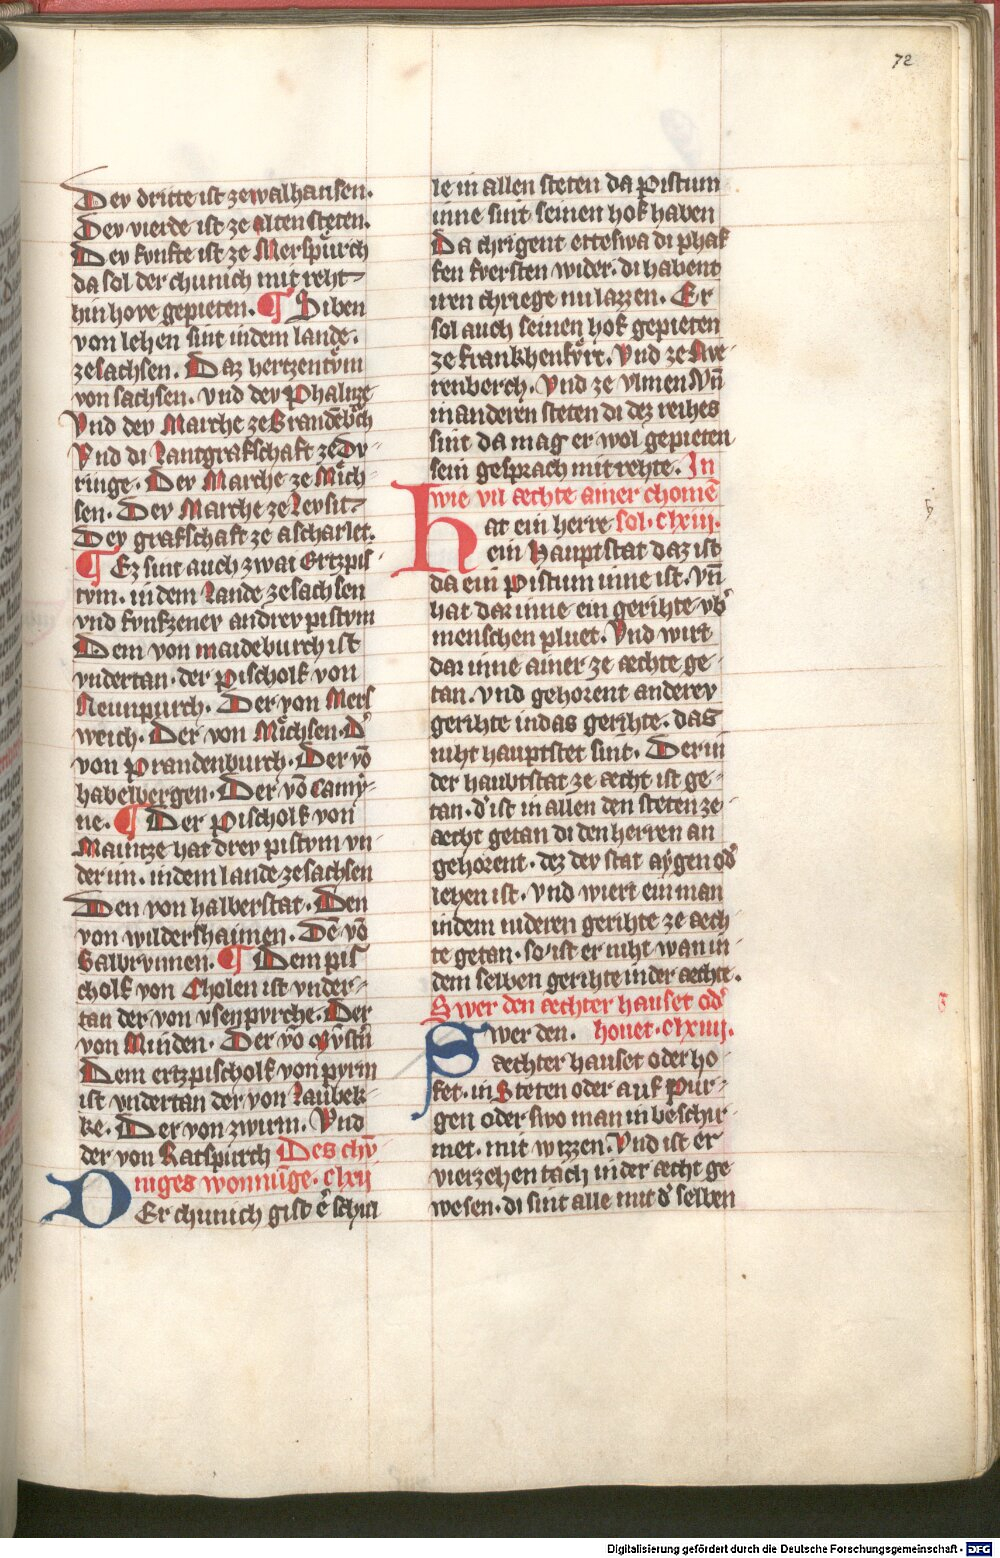 72
Dev dritte ist zewalhausen.
Dev vierde ist ze alten steten.
Dev fvnfte ist ze Merspurch
da sol der chunich mit reht
hin hove gepieten. ¶ Siben
von lehen sint indem lande.
zesachsen. Daz hertzentům
von sachsen. vnd dev Phalnze
Vnd dev Marche ze Brandēbůch
Vnd di Lantgrafschaft ze Dv-
ringe. Dev Marche ze Mich-
sen. Dev Marche ze Levsitz
Dev grafschaft ze ascharlet.
¶ Ez sint auch zwai Ertzpis-
tvm. in dem Lande zesachsen
vnd fvnfzenev andrev pistvm
Dem von maideburch ist
vndertan. der pischolf von
Neunpurch. Der von Mers
weich. Der von Michsen. D'
von prandenburch. Der võ
habelbergen. Der võ Camy-
ne. ¶ Der pischolf von
Maintze hat drev pistvm vn
der im. indem lande zesachsen
Den von halberstat. Den
von wildershaimen. Dē võ
Balbrvnnen. ¶ Dem pis
cholf von Cholen ist vnder-
tan der von vsenpvrche. Der
von Minden. Der võ Mvstn̄
Dem ertzpischolf von pyrm
ist vndertan der von Laubek-
ke. Der von zwurin. Vnd
der von Ratspurch Des chv̄
niges wonnūge. clxij
Der chunich gist ē schul
le in allen steten da Pistum
inne sint seinen hof haben
Da chrigent etteswa di phaf
fen fversten wider. di habent
iren chriege nu lazzen. Er
sol auch seinen hof gepieten
ze frankhenfvrt. Vnd ze Nve-
renberch. Vnd ze vlmen Vn̄
in anderen steten di dez reihes
sint da mag er wol gepieten
sein gesprach mit rehte. In
wie vil æchte ainer chomē
hat ein herre sol. clxiij.
ein Hauptstat daz ist
da ein pistum inne ist. Vn̄
hat dar inne ein gerihte vb'
menschen pluet. Vnd wirt
dar inne ainer ze æchte ge-
tan. vnd gehorent anderev
gerihte indas gerihte. das
niht hauptstet sint. Der in
der haubtstat ze æcht ist ge-
tan. d' ist in allen den steten ze
æcht getan di den herren an
gehorent. dez dev stat aygen od'
lehen ist. vnd wiert ein man
indem nideren gerihte ze æch-
te getan. so ist er niht wan in
dem selben gerihte in der æchte.
Swer den æchter hauset od'
Swer den. houet. clxiiij.
æchter hauset oder ho-
fet. in Steten oder auf Pur-
gen oder swo man in beschir-
met. mit wizzen. Vnd ist er
vierzehen tach in der æcht ge
wesen. di sint alle mit d' selben
Digitalisierung gefördert durch die Deutsche Forschungsgemeinschaft - DFG